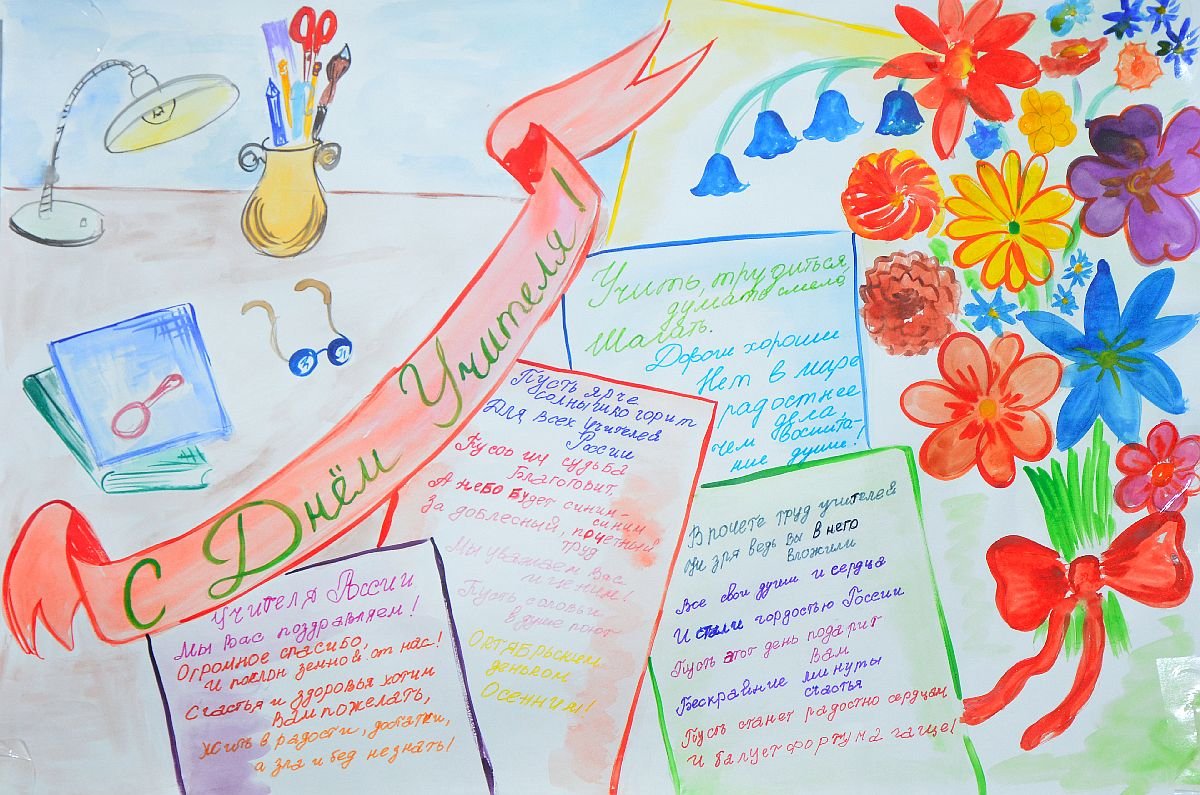 С Днём Учителя!
Учить, трудиться,
думать смело,
Шагать.
Дороги хороши
Нет в мире
радостнее
дела,
чем воспита-
ние души!
Пусть ярче
солнышко горит
Для всех учителей
России
Пусть их судьба
Благоговит,
А небо будет синим-
синим
За доблесный, почетный
труд
Мы уважаем Вас
и ценим!
Пусть соловьи
в душе поют
Октябрьским
деньком
Осенним!
Учителя России
Мы Вас поздравляем!
Огромное спасибо,
И поклон земной от нас!
Счастья и здоровья хотим
Вам пожелать,
Жить в радости, достатки,
а зла и бед не знать!
В почете труд учителей
Ни зря ведь вы в него
вложили
Все свои души и сердца
И стали гордостью России
Пусть этот день подарит
Вам
Бескрайние минуты
счастья
Пусть станет радостно сердцам
И балует фортуна чаще!